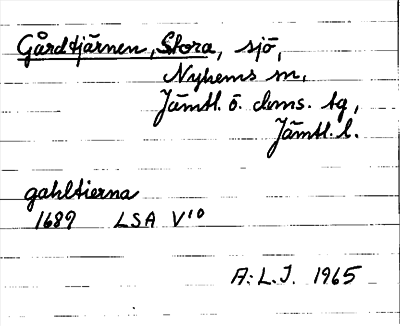 Gårdtjärnen, Stora, sjö,
Nyhems sn,
Jämtl. ö. doms. tg,
Jämtl. l.
gahltierna
1689 LSA V¹⁰
A.L.J. 1965